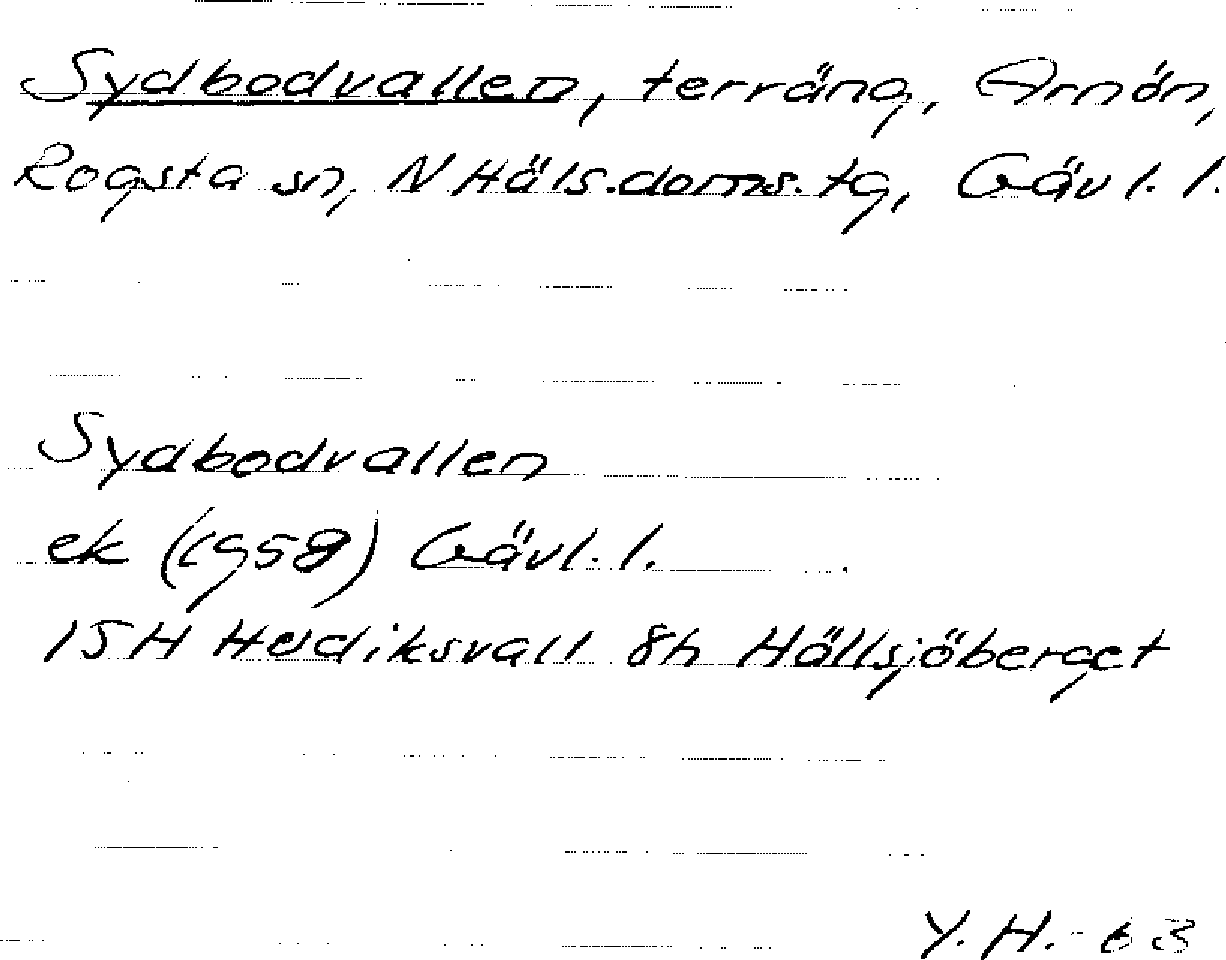 Sydbodvallen, terräng, Arnön,
Rogsta sn, N Häls.doms.tg, Gävl. l.
Sydbodvallen
ek (1958) Gävl. l.
15H Hudiksvall 8h Hällsjöberget
Y. H. - 63